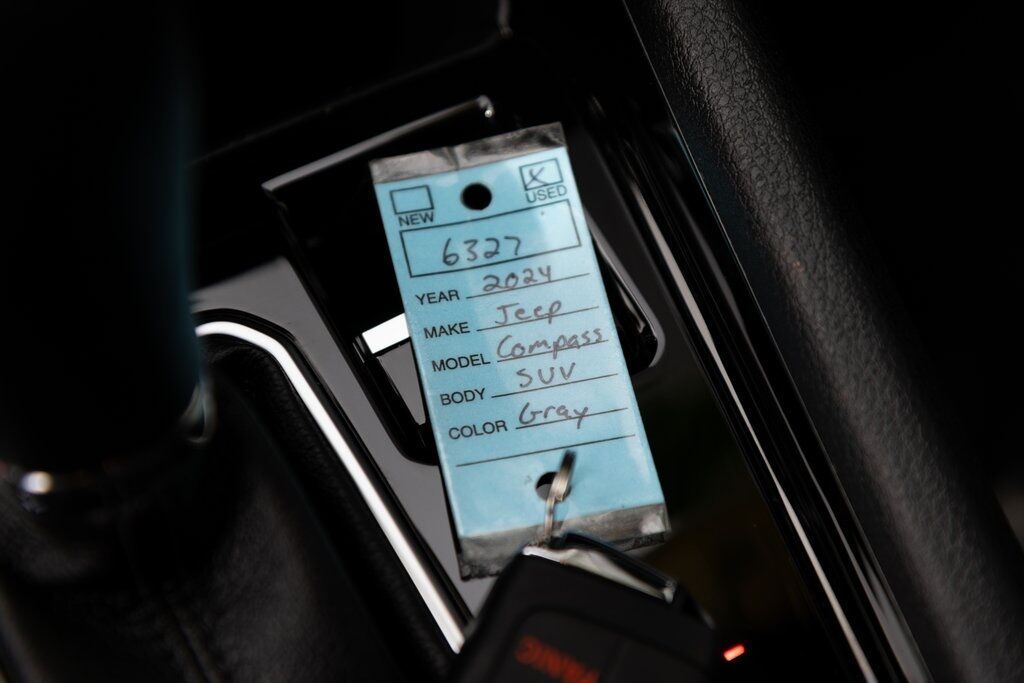 NEW X USED
6327
YEAR 2024
MAKE Jeep
MODEL Compass
BODY SUV
COLOR Gray
PANIC